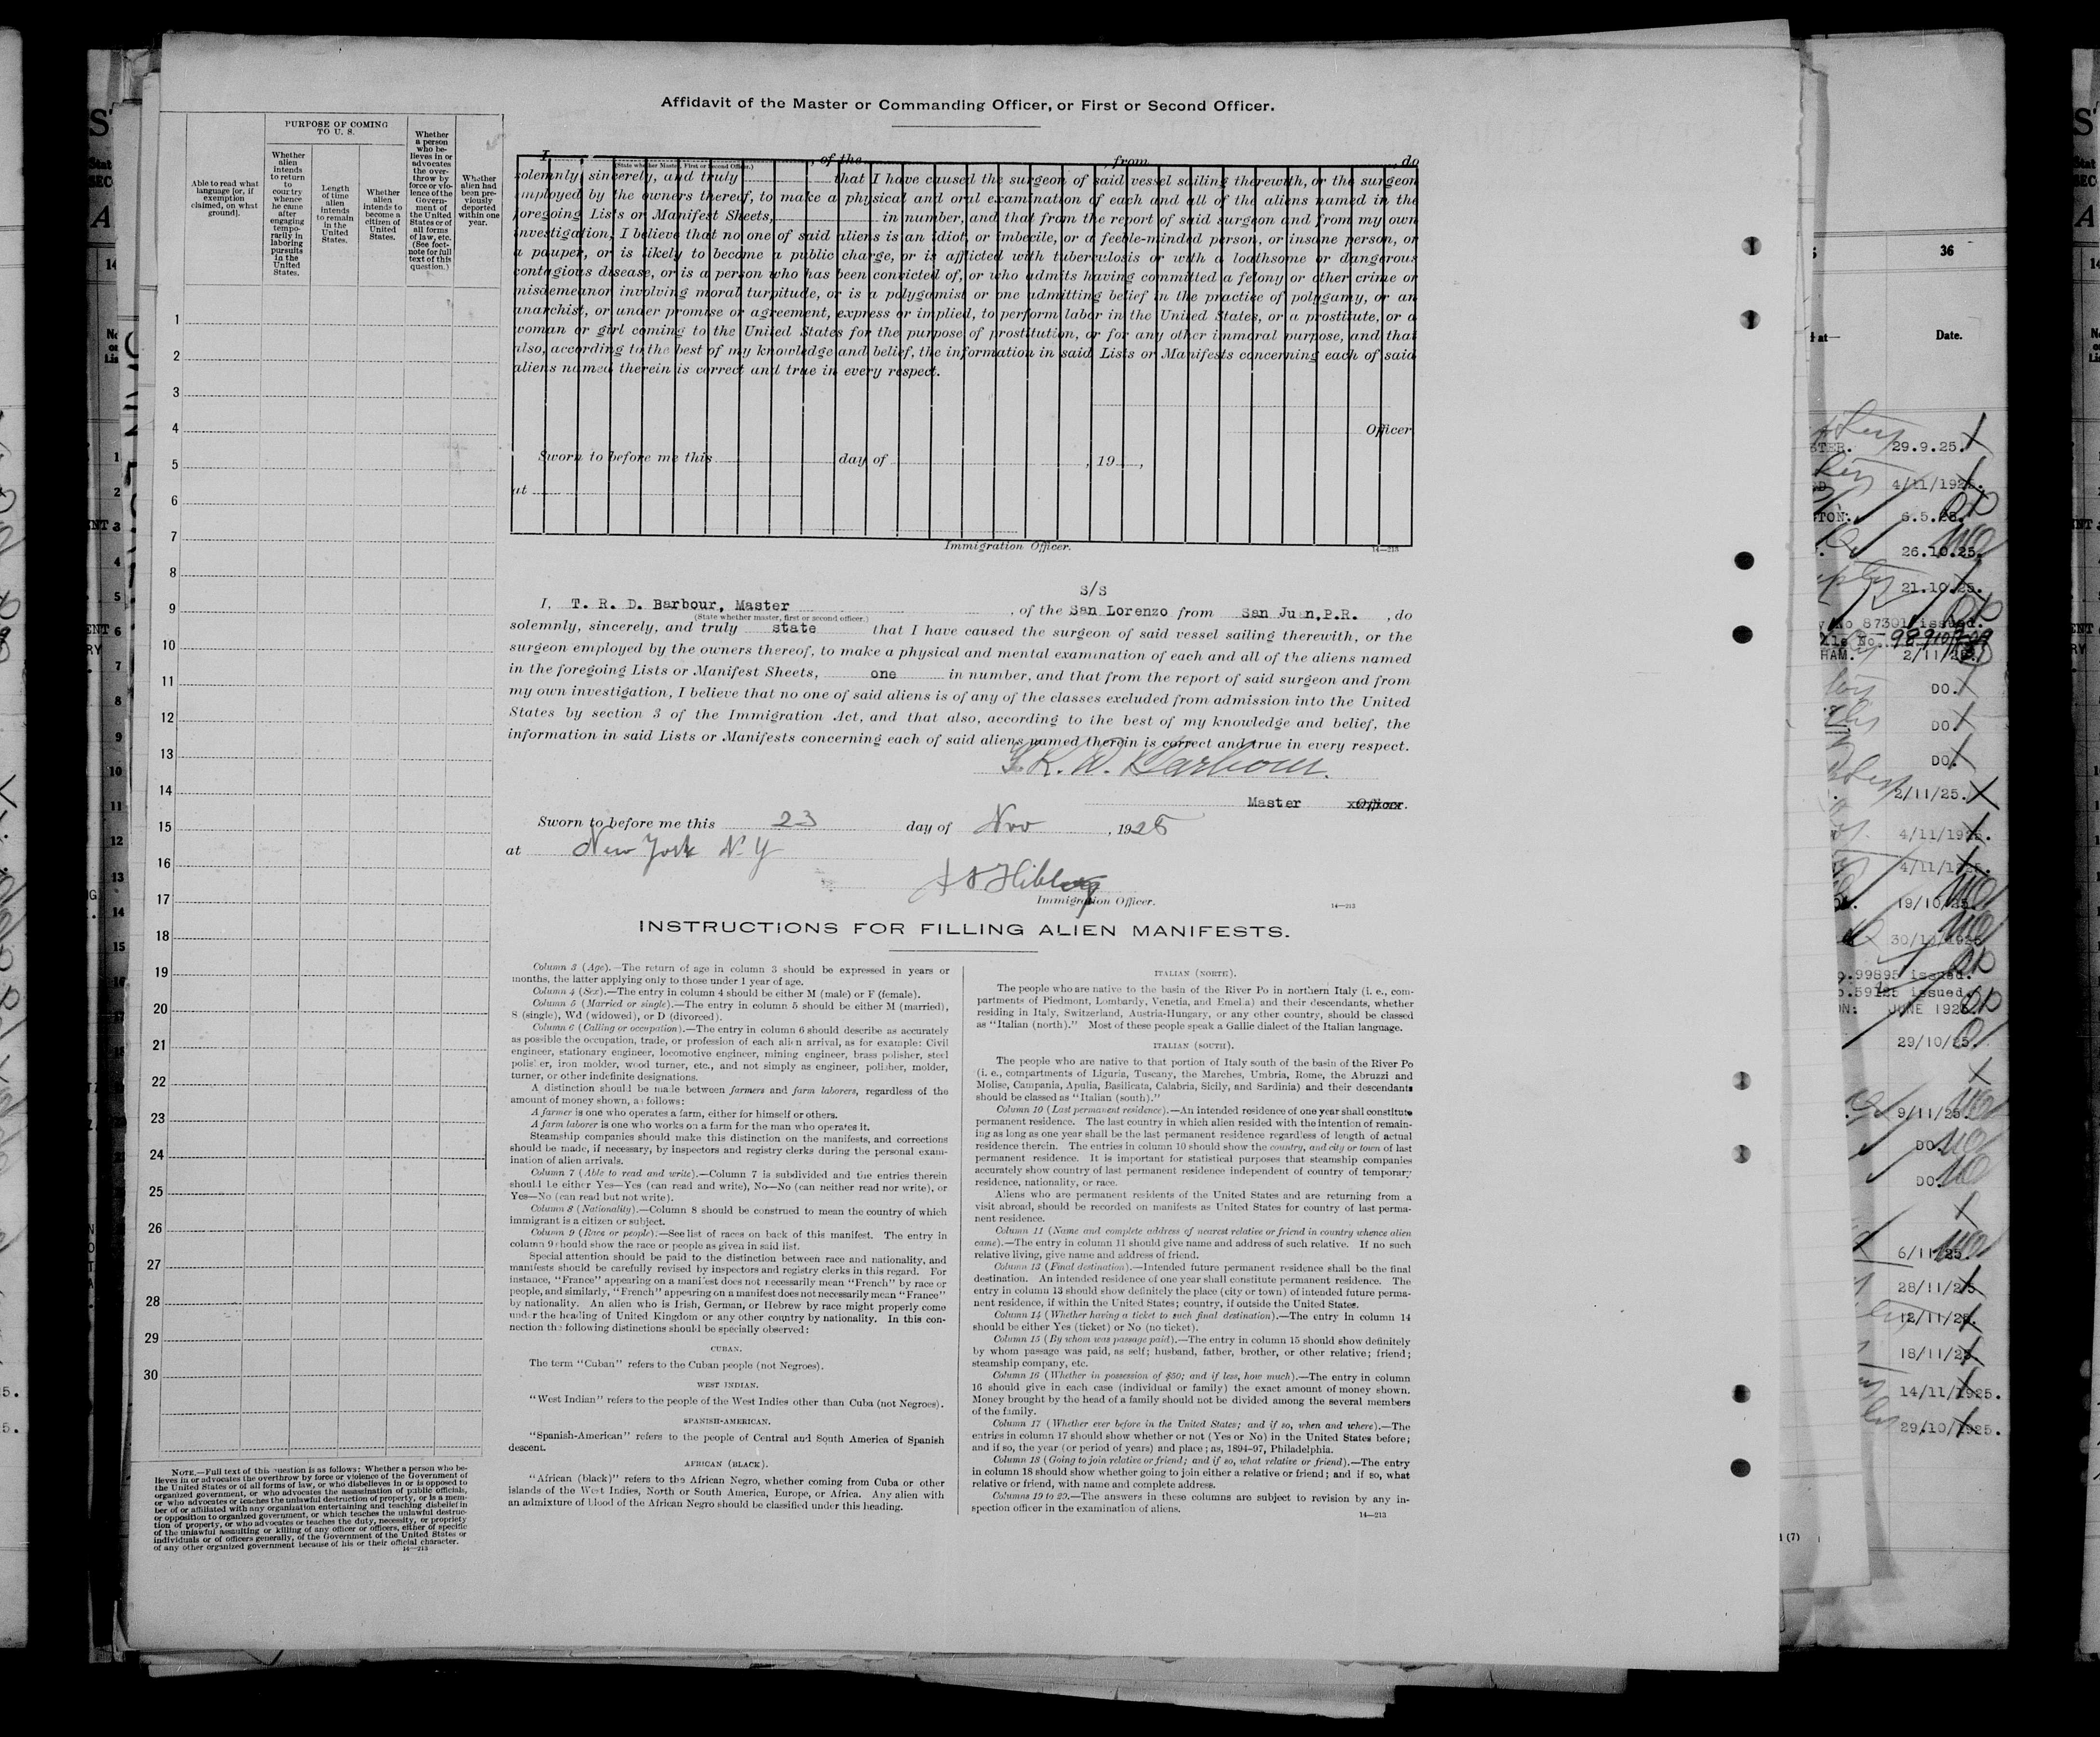 Affidavit of the Master or Commanding Officer, or First or Second Officer.
PURPOSE OF COMING
TO U. S.
Able to read what
language [or, if
exemption
claimed, on what
ground].
Whether
alien
intends
to return
to
country
whence
he came
after
engaging
tempo-
rarily in
laboring
pursuits
in the
United
States.
Length
of time
alien
intends
to remain
in the
United
States.
Whether
alien
intends to
become a
citizen of
United
States.
Whether
a person
who be-
lieves in or
advocates
the over-
throw by
force or vio-
lence of the
Govern-
ment of
the United
States or of
all forms
of law, etc.
(See foot-
note for full
text of this
question.)
Whether
alien had
been pre-
viously
deported
within one
year.
1
2
3
4
5
6
7
8
9
10
11
12
13
14
15
16
17
18
19
20
21
22
23
24
25
26
27
28
29
30
NOTE.—Full text of this question is as follows: Whether a person who be-
lieves in or advocates the overthrow by force or violence of the Government of
the United States or of all forms of law, or who disbelieves in or is opposed to
organized government, or who advocates the assassination of public officials,
or who advocates or teaches the unlawful destruction of property, or is a mem-
ber of or affiliated with any organization entertaining and teaching disbelief in
or opposition to organized government, or which teaches the unlawful destruc-
tion of property, or who advocates or teaches the duty, necessity, or propriety
of the unlawful assaulting or killing of any officer or officers, either of specific
individuals or of officers generally, of the Government of the United States or
of any other organized government because of his or their official character.
14—213
I, , of the , from , do
(State whether Master, First or Second Officer.)
solemnly, sincerely, and truly that I have caused the surgeon of said vessel sailing therewith, or the surgeon
employed by the owners thereof, to make a physical and oral examination of each and all of the aliens named in the
foregoing Lists or Manifest Sheets, in number, and that from the report of said surgeon and from my own
investigation, I believe that no one of said aliens is an idiot, or imbecile, or a feeble-minded person, or insane person, or
a pauper, or is likely to become a public charge, or is afflicted with tuberculosis or with a loathsome or dangerous
contagious disease, or is a person who has been convicted of, or who admits having committed a felony or other crime or
misdemeanor involving moral turpitude, or is a polygamist or one admitting belief in the practice of polygamy, or an
anarchist, or under promise or agreement, express or implied, to perform labor in the United States, or a prostitute, or a
woman or girl coming to the United States for the purpose of prostitution, or for any other immoral purpose, and that
also, according to the best of my knowledge and belief, the information in said Lists or Manifests concerning each of said
aliens named therein is correct and true in every respect.
Officer
Sworn to before me this day of , 19 ,
at
Immigration Officer.
14—213
S/S
I, T. R. D. Barbour, Master , of the San Lorenzo from San Juan,P.R. , do
(State whether master, first or second officer.)
solemnly, sincerely, and truly state that I have caused the surgeon of said vessel sailing therewith, or the
surgeon employed by the owners thereof, to make a physical and mental examination of each and all of the aliens named
in the foregoing Lists or Manifest Sheets, one in number, and that from the report of said surgeon and from
my own investigation, I believe that no one of said aliens is of any of the classes excluded from admission into the United
States by section 3 of the Immigration Act, and that also, according to the best of my knowledge and belief, the
information in said Lists or Manifests concerning each of said aliens named therein is correct and true in every respect.
T. R. D. Barbour.
Master Officer.
Sworn to before me this 23 day of Nov , 1925
at New York N. Y
Immigration Officer.
14—213
INSTRUCTIONS FOR FILLING ALIEN MANIFESTS.
Column 3 (Age).—The return of age in column 3 should be expressed in years or
months, the latter applying only to those under 1 year of age.
Column 4 (Sex).—The entry in column 4 should be either M (male) or F (female).
Column 5 (Married or single).—The entry in column 5 should be either M (married),
S (single), Wd (widowed), or D (divorced).
Column 6 (Calling or occupation).—The entry in column 6 should describe as accurately
as possible the occupation, trade, or profession of each alien arrival, as for example: Civil
engineer, stationary engineer, locomotive engineer, mining engineer, brass polisher, steel
polisher, iron molder, wood turner, etc., and not simply as engineer, polisher, molder,
turner, or other indefinite designations.
A distinction should be made between farmers and farm laborers, regardless of the
amount of money shown, as follows:
A farmer is one who operates a farm, either for himself or others.
A farm laborer is one who works on a farm for the man who operates it.
Steamship companies should make this distinction on the manifests, and corrections
should be made, if necessary, by inspectors and registry clerks during the personal exam-
ination of alien arrivals.
Column 7 (Able to read and write).—Column 7 is subdivided and the entries therein
should be either Yes—Yes (can read and write), No—No (can neither read nor write), or
Yes—No (can read but not write).
Column 8 (Nationality).—Column 8 should be construed to mean the country of which
immigrant is a citizen or subject.
Column 9 (Race or people).—See list of races on back of this manifest. The entry in
column 9 should show the race or people as given in said list.
Special attention should be paid to the distinction between race and nationality, and
manifests should be carefully revised by inspectors and registry clerks in this regard. For
instance, "France" appearing on a manifest does not necessarily mean "French" by race or
people, and similarly, "French" appearing on a manifest does not necessarily mean "France"
by nationality. An alien who is Irish, German, or Hebrew by race might properly come
under the heading of United Kingdom or any other country by nationality. In this con-
nection the following distinctions should be specially observed:
CUBAN.
The term "Cuban" refers to the Cuban people (not Negroes).
WEST INDIAN.
"West Indian" refers to the people of the West Indies other than Cuba (not Negroes).
SPANISH-AMERICAN.
"Spanish-American" refers to the people of Central and South America of Spanish
descent.
AFRICAN (BLACK).
"African (black)" refers to the African Negro, whether coming from Cuba or other
islands of the West Indies, North or South America, Europe, or Africa. Any alien with
an admixture of blood of the African Negro should be classified under this heading.
ITALIAN (NORTH).
The people who are native to the basin of the River Po in northern Italy (i. e., com-
partments of Piedmont, Lombardy, Venetia, and Emelia) and their descendants, whether
residing in Italy, Switzerland, Austria-Hungary, or any other country, should be classed
as "Italian (north)." Most of these people speak a Gallic dialect of the Italian language.
ITALIAN (SOUTH).
The people who are native to that portion of Italy south of the basin of the River Po
(i. e., compartments of Liguria, Tuscany, the Marches, Umbria, Rome, the Abruzzi and
Molise, Campania, Apulia, Basilicata, Calabria, Sicily, and Sardinia) and their descendants
should be classed as "Italian (south)."
Column 10 (Last permanent residence).—An intended residence of one year shall constitute
permanent residence. The last country in which alien resided with the intention of remain-
ing as long as one year shall be the last permanent residence regardless of length of actual
residence therein. The entries in column 10 should show the country, and city or town of last
permanent residence. It is important for statistical purposes that steamship companies
accurately show country of last permanent residence independent of country of temporary
residence, nationality, or race.
Aliens who are permanent residents of the United States and are returning from a
visit abroad, should be recorded on manifests as United States for country of last perma-
nent residence.
Column 11 (Name and complete address of nearest relative or friend in country whence alien
came).—The entry in column 11 should give name and address of such relative. If no such
relative living, give name and address of friend.
Column 13 (Final destination).—Intended future permanent residence shall be the final
destination. An intended residence of one year shall constitute permanent residence. The
entry in column 13 should show definitely the place (city or town) of intended future perma-
nent residence, if within the United States; country, if outside the United States.
Column 14 (Whether having a ticket to such final destination).—The entry in column 14
should be either Yes (ticket) or No (no ticket).
Column 15 (By whom was passage paid).—The entry in column 15 should show definitely
by whom passage was paid, as self; husband, father, brother, or other relative; friend;
steamship company, etc.
Column 16 (Whether in possession of $50; and if less, how much).—The entry in column
16 should give in each case (individual or family) the exact amount of money shown.
Money brought by the head of a family should not be divided among the several members
of the family.
Column 17 (Whether ever before in the United States; and if so, when and where).—The
entries in column 17 should show whether or not (Yes or No) in the United States before;
and if so, the year (or period of years) and place; as, 1894-97, Philadelphia.
Column 18 (Going to join relative or friend; and if so, what relative or friend).—The entry
in column 18 should show whether going to join either a relative or friend; and if so, what
relative or friend, with name and complete address.
Columns 19 to 29.—The answers in these columns are subject to revision by any in-
spection officer in the examination of aliens.
14—213
36
Date.
29.9.25.
4/11/1925.
6.5.25.
26.10.25.
21.10.25.
No 87301 issued.
HAM. 2/11/25.
DO.
DO.
DO.
2/11/25.
4/11/1925.
4/11/1925.
19/10/25.
99895 issued.
59125 issued.
JUNE 1925.
29/10/25.
9/11/25.
DO.
DO.
6/11/25.
28/11/25
12/11/25.
18/11/25
14/11/1925.
29/10/1925.
(7)